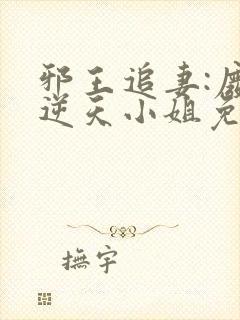 邪王追妻:廢
逆天小姐免
撫宇